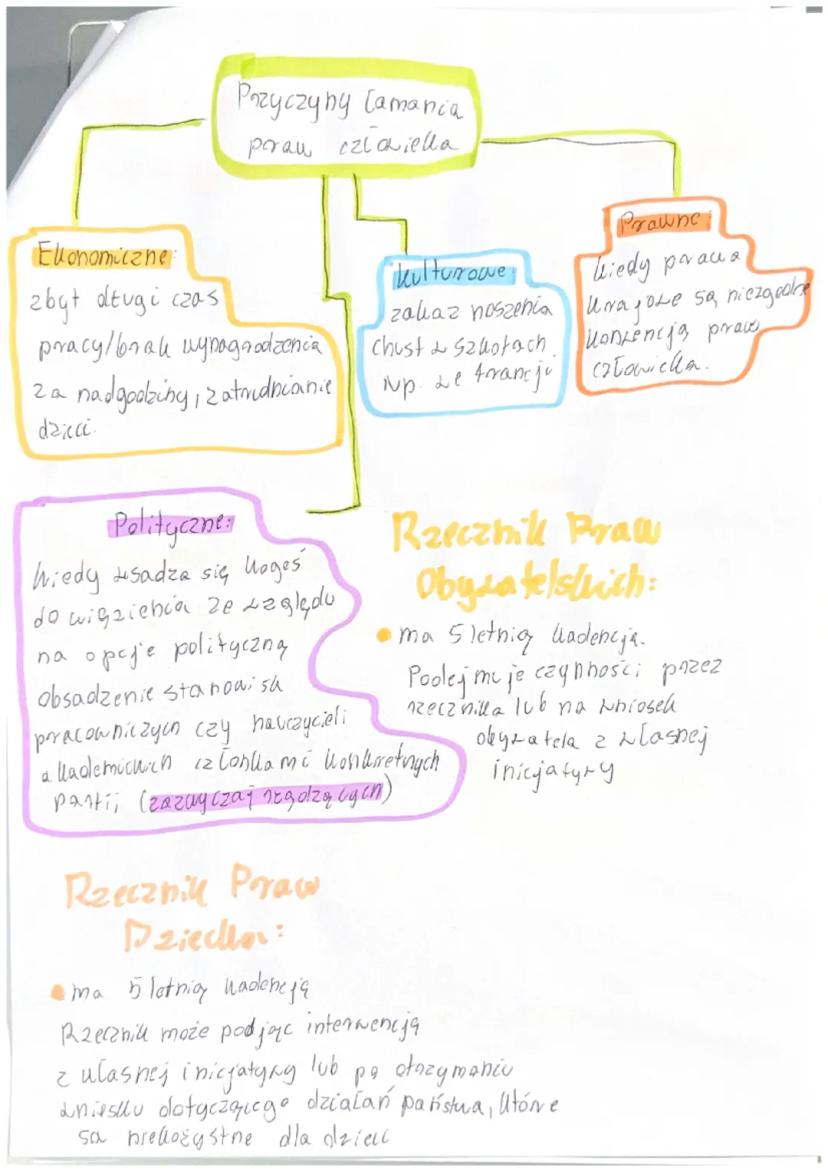 Przyczyny łamania
praw człowieka
Ekonomiczne:
zbyt długi czas
pracy/brak wynagrodzenia
za nadgodziny, zatrudnianie
dzieci.
Kulturowe
zakaz noszenia
chust w szkołach
np. we francji
Prawne:
kiedy prawa
krajowe są niezgodne
konwencją praw
człowieka.
Polityczne:
kiedy wsadza się kogoś
do więzienia ze względu
na opcję polityczną
obsadzenie stanowisk
pracowniczych czy nauczycieli
akademickich członkami konkretnych
partii (zazwyczaj rządzących)
Rzecznik Praw
Obywatelskich:
• ma 5 letnią kadencją.
Podejmuje czynności przez
rzecznika lub na wniosek
obywatela z własnej
inicjatywy
Rzecznik Praw
Dziecka:
• ma 5 letnią kadencję
Rzecznik może podjąc interwencją
z własnej inicjatywy lub po otrzymaniu
wniosku dotyczącego działań państwa, które
sa niekożystne dla dzieci